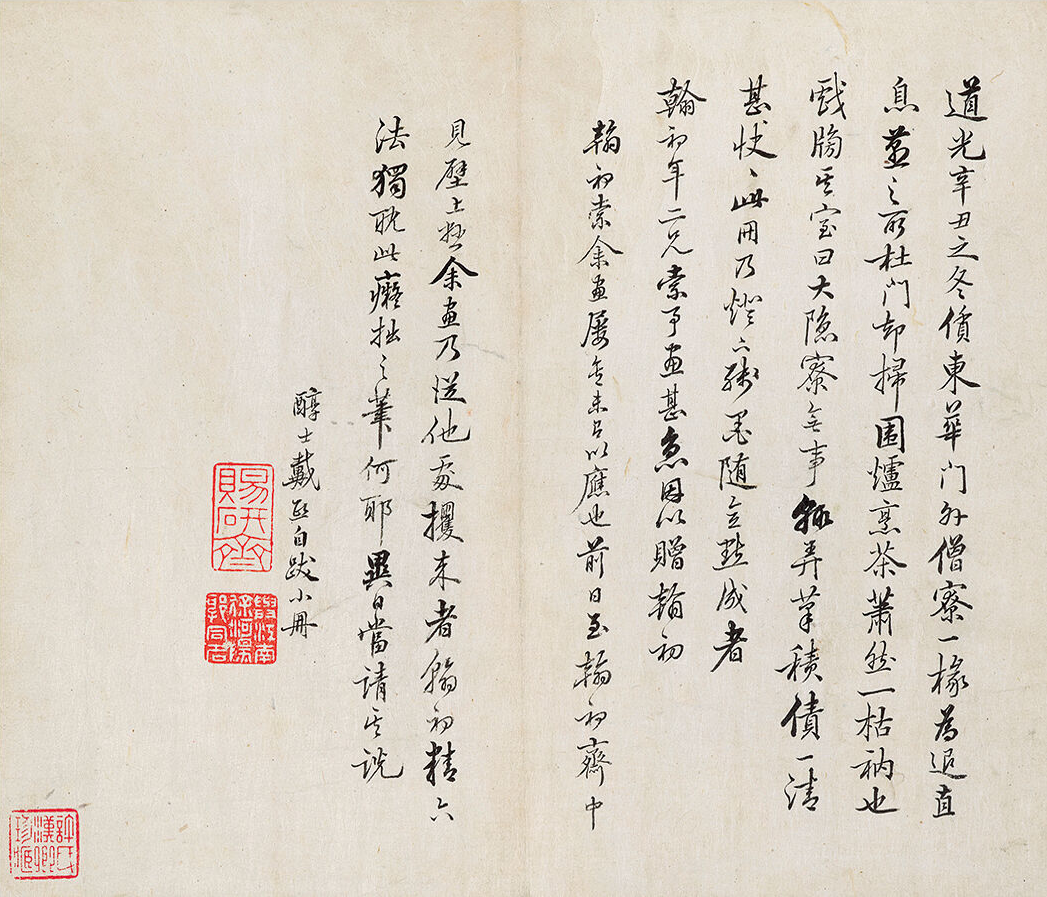 道光辛丑之冬賃東華門外僧寮一椽為退直
息蓋之所杜門却掃圍爐烹茶蕭然一枯衲也
戲牓其室曰大隱寮無事輒弄筆積債一清
甚快〻此冊乃燈下殘墨隨意點成者
翰初年二兄索予畫甚急因以贈翰初
翰初索余畫屢未以應也前日至翰初齋中
見壁上懸余畫乃從他處攫来者翰初精六
法獨耽此癡拙之筆何耶異日當請其說
醇士戴熙自跋小冊
賜研齋
許氏漢卿珍藏